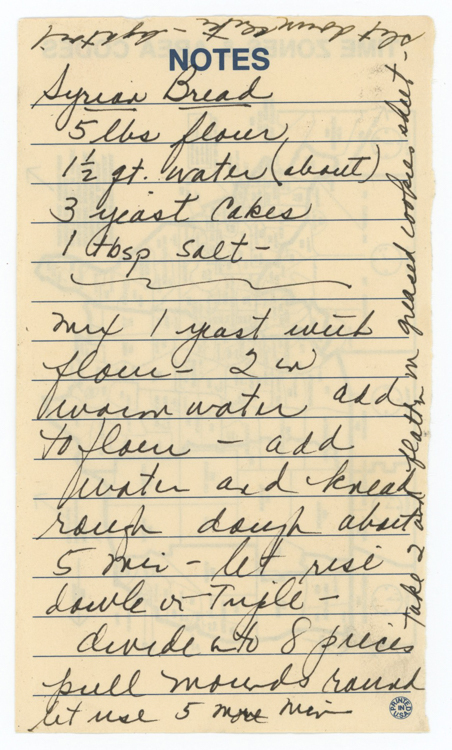 NOTES
Syrian Bread
5 lbs flour
1½ qt. water (about)
3 yeast Cakes
1 tbsp salt -
mix 1 yeast with
flour - 2 in
warm water add
to flour - add
water and knead
rough dough about
5 min - let rise
double or Triple -
divide into 8 pieces
pull mounds round
let rise 5 more min
take 2 and flatten on greased cookie sheet -
let down
PRINTED IN U.S.A.
TIME ZONE AREA CODES